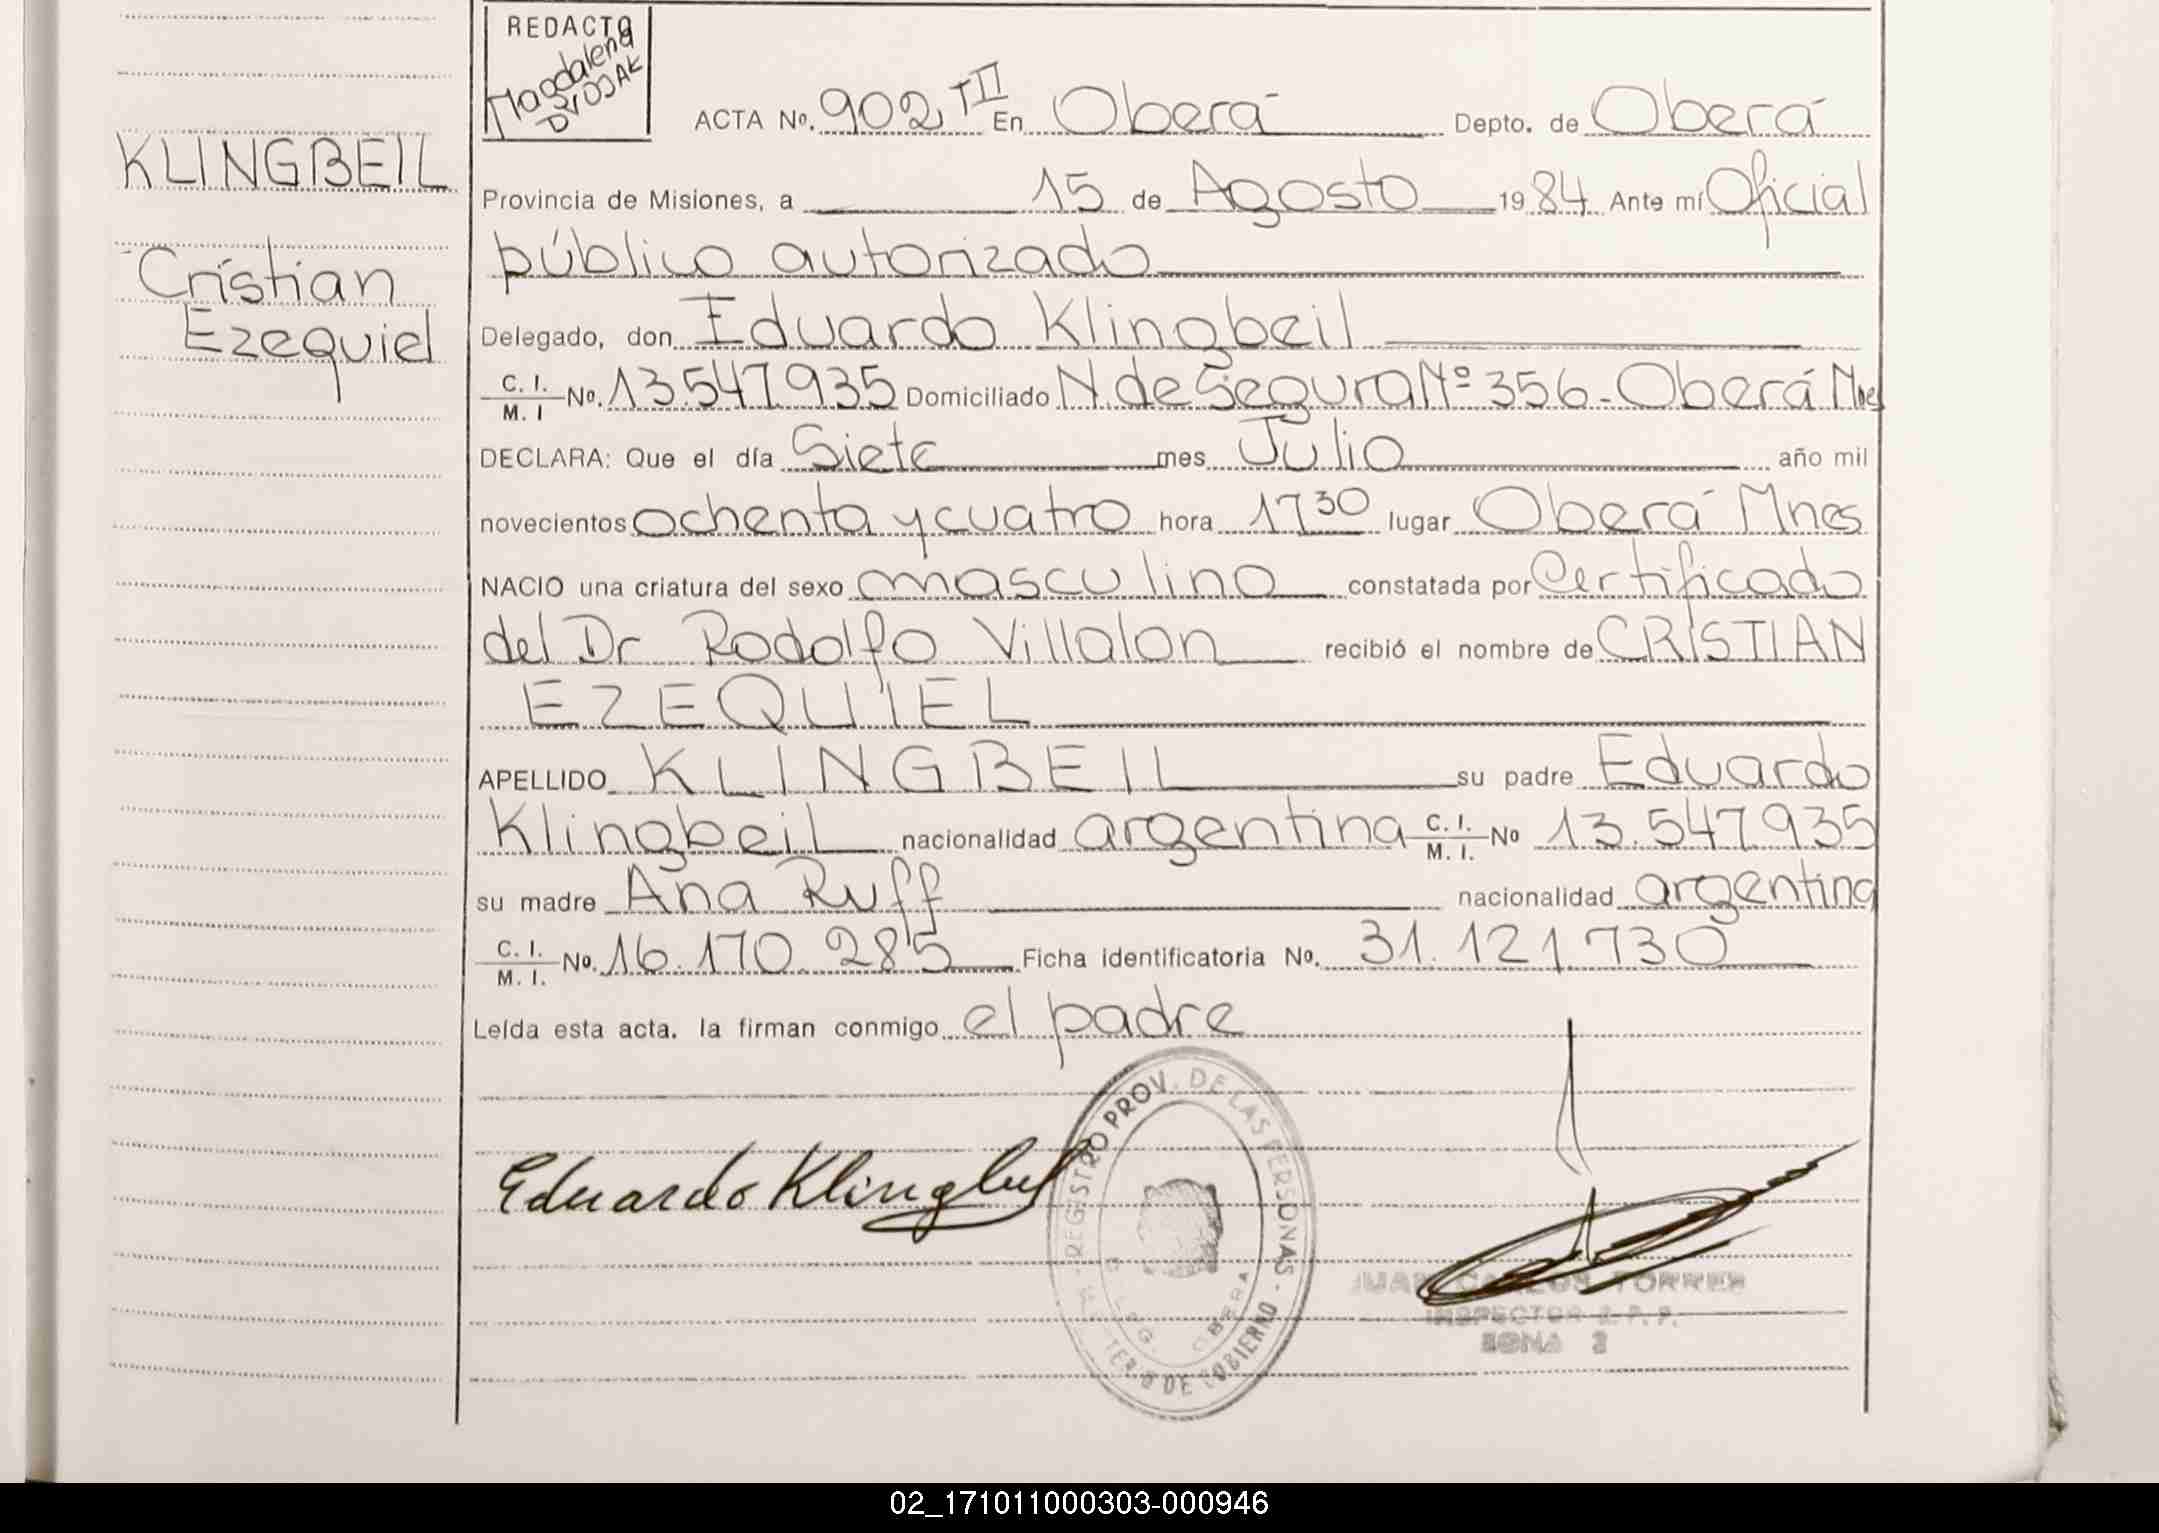 REDACTO
Magdalena
DVOJAK
ACTA No. 902 TII En Oberá Depto. de Oberá
KLINGBEIL
Provincia de Misiones, a 15 de Agosto 1984 Ante mí Oficial
público autorizado
Cristian
Ezequiel
Delegado, don Eduardo Klingbeil
C. I. M. I No. 13.547.935 Domiciliado N. de Segura Nº 356 - Oberá Mnes
DECLARA: Que el día Siete mes Julio año mil
novecientos ochenta y cuatro hora 17 30 lugar Oberá Mnes
NACIO una criatura del sexo masculino constatada por Certificado
del Dr Rodolfo Villalon recibió el nombre de CRISTIAN
EZEQUIEL
APELLIDO KLINGBEIL su padre Eduardo
Klingbeil nacionalidad argentina C. I. M. I. No 13.547.935
su madre Ana Ruff nacionalidad argentina
C. I. M. I. No. 16.170.285 Ficha identificatoria No. 31.121.730
Leída esta acta. la firman conmigo el padre
Eduardo Klingbeil
REGISTRO PROV. DE LAS PERSONAS
TERIO DE GOBIERNO
OBERA
JUAN CARLOS TORRES
INSPECTOR
ZONA
02_171011000303-000946